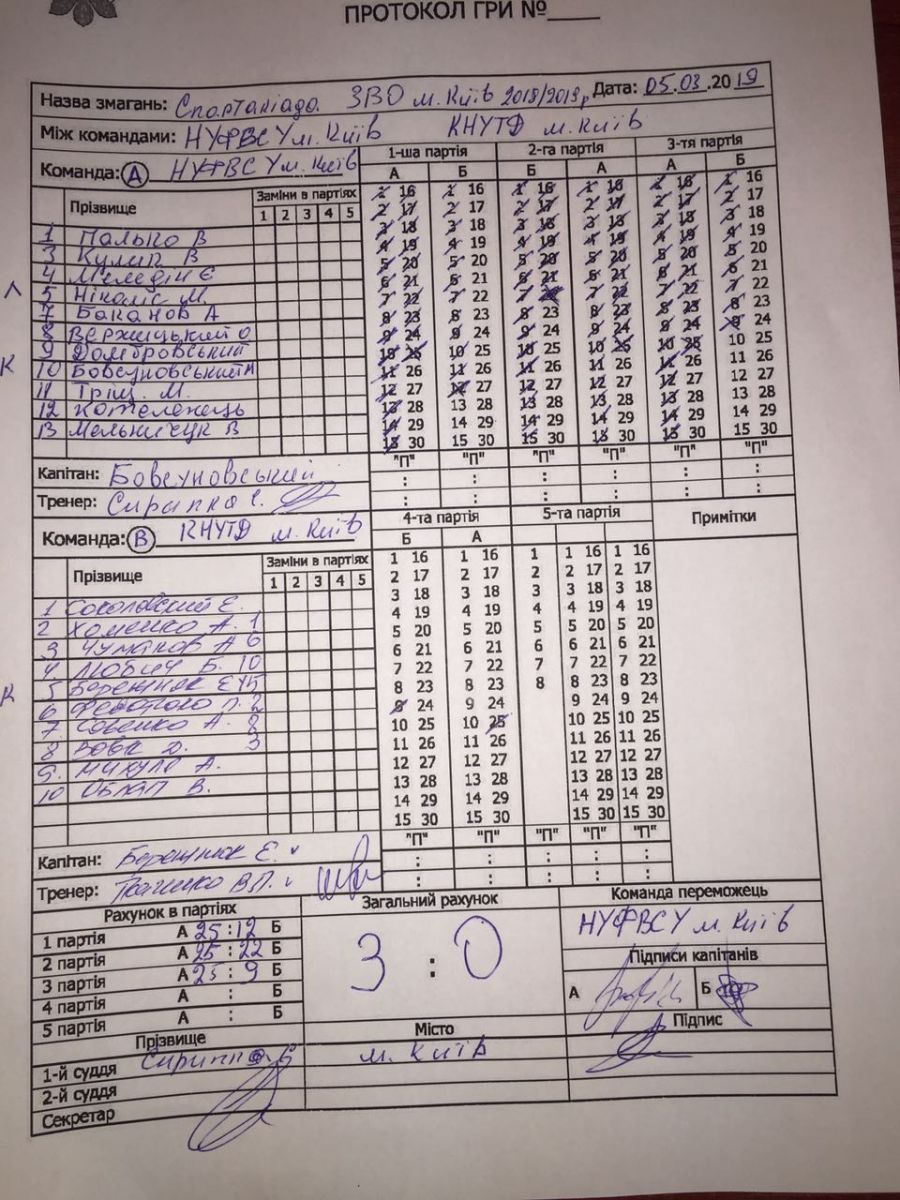 ПРОТОКОЛ ГРИ №____
Назва змагань: Спартакіада ЗВО м. Київ 2018/2019р Дата: 05.03.2019
Між командами: НУФВСУ м. Київ КНУТД м. Київ
Команда: А НУФВСУ м. Київ
1-ша партія 2-га партія 3-тя партія
А Б Б А А Б
Прізвище Заміни в партіях
1 2 3 4 5
1 16 1 16 1 16 1 16 1 16 1 16
2 17 2 17 2 17 2 17 2 17 2 17
3 18 3 18 3 18 3 18 3 18 3 18
4 19 4 19 4 19 4 19 4 19 4 19
5 20 5 20 5 20 5 20 5 20 5 20
6 21 6 21 6 21 6 21 6 21 6 21
7 22 7 22 7 22 7 22 7 22 7 22
8 23 8 23 8 23 8 23 8 23 8 23
9 24 9 24 9 24 9 24 9 24 9 24
10 25 10 25 10 25 10 25 10 25 10 25
11 26 11 26 11 26 11 26 11 26 11 26
12 27 12 27 12 27 12 27 12 27 12 27
13 28 13 28 13 28 13 28 13 28 13 28
14 29 14 29 14 29 14 29 14 29 14 29
15 30 15 30 15 30 15 30 15 30 15 30
"П" "П" "П" "П" "П" "П"
: : : : : :
: : : : : :
1 Палько В
3 Кулик В
4 Мемедін Є
Л 5 Ніколіс М.
7 Баканов А
8 Вержицький О
9 Домбровський
К 10 Бовсуновський Н
11 Тріщ. М.
12 Котеленець
13 Мельничук В
Капітан: Бовсуновський
Тренер: Сирипко Є.
Команда: В КНУТД м. Київ
4-та партія 5-та партія Примітки
Б А
Прізвище Заміни в партіях
1 2 3 4 5
1 16 1 16 1 1 16 1 16
2 17 2 17 2 2 17 2 17
3 18 3 18 3 3 18 3 18
4 19 4 19 4 4 19 4 19
5 20 5 20 5 5 20 5 20
6 21 6 21 6 6 21 6 21
7 22 7 22 7 7 22 7 22
8 23 8 23 8 8 23 8 23
9 24 9 24 9 24 9 24
10 25 10 25 10 25 10 25
11 26 11 26 11 26 11 26
12 27 12 27 12 27 12 27
13 28 13 28 13 28 13 28
14 29 14 29 14 29 14 29
15 30 15 30 15 30 15 30
"П" "П" "П" "П" "П"
: : : : :
: : : : :
1 Соколовский Е.
2 Хоменко А. 1
3 Чумаков А 6
4 Любич Б. 10
К 5 Берешнюк Е
6 П. 2
7 Совенко А. 8
8 Вовк Д. 3
9. Микула А.
10 В.
Капітан: Берешнюк Е.
Тренер: Ткаченко В.П.
Рахунок в партіях Загальний рахунок Команда переможець
1 партія А 25 : 12 Б
2 партія А 25 : 22 Б
3 партія А 25 : 9 Б
4 партія А : Б
5 партія А : Б
3 : 0
НУФВСУ м. Київ
Підписи капітанів
А Б
Прізвище Місто Підпис
1-й суддя Сирипко Є м. Київ
2-й суддя
Секретар